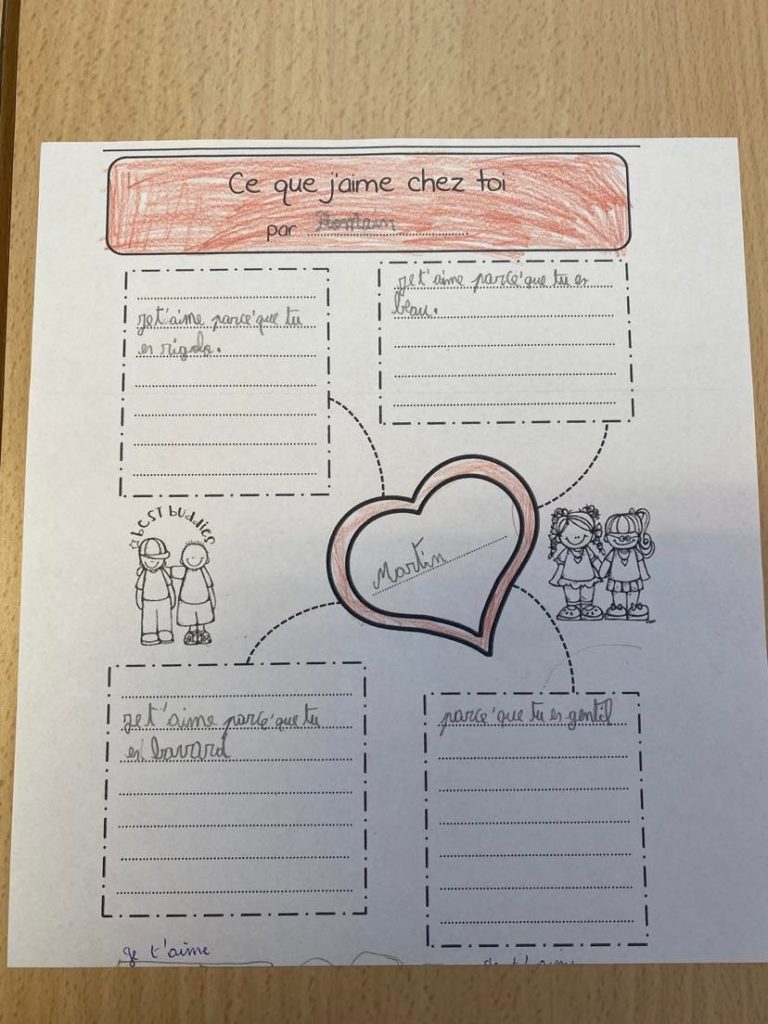 Ce que j'aime chez toi
par Romain
je t'aime parce'que tu
es rigolo.
je t'aime parce'que tu es
beau.
best buddies
Martin
je t'aime parce'que tu
es bavard
parce'que tu es gentil
je t'aime
je t'aime